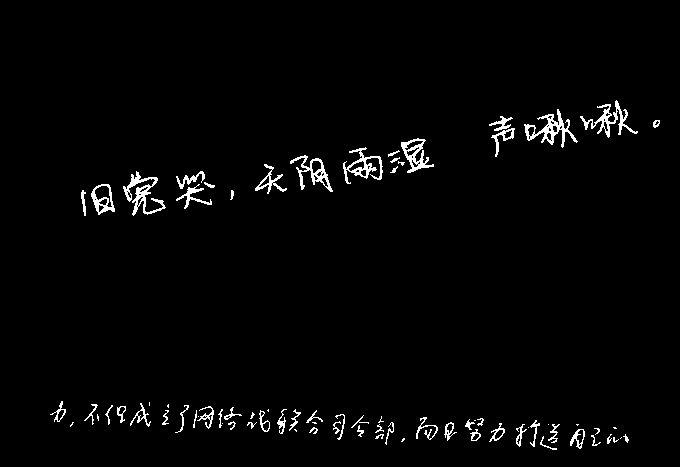 旧鬼哭，天阴雨湿 声啾啾。
力，不但成立了网络战联合司令部，而且努力打造自己的